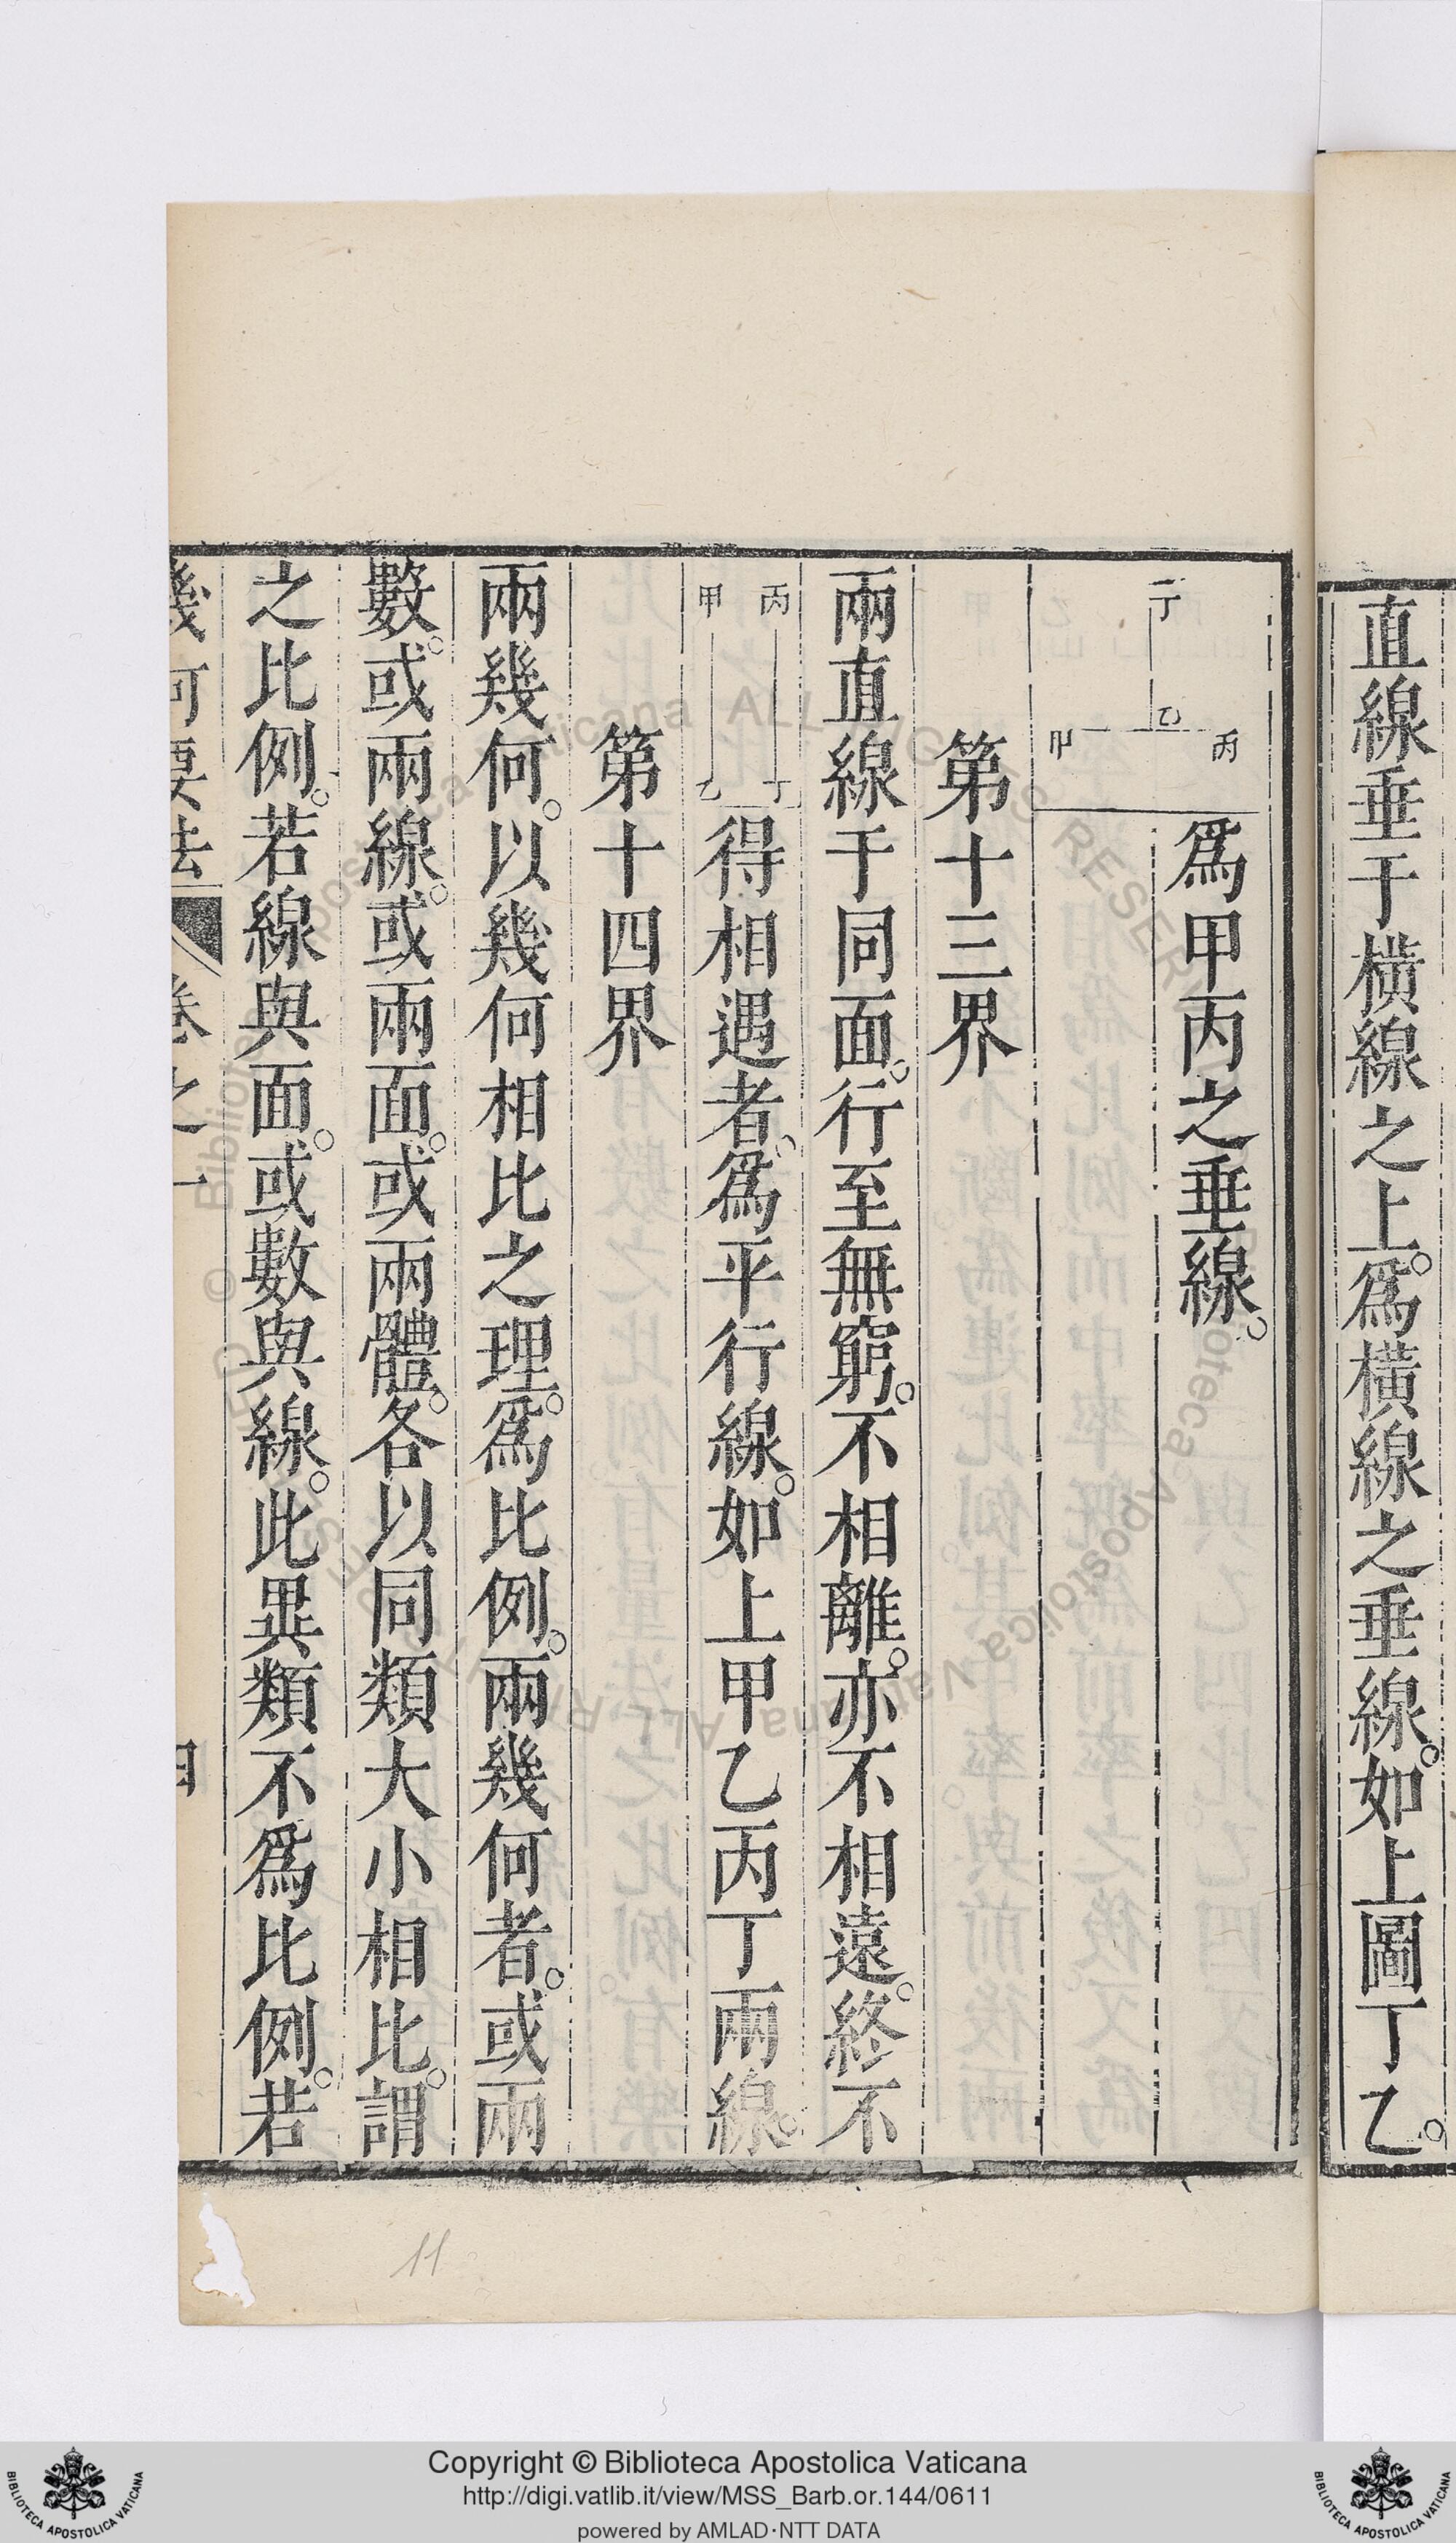 直線垂于橫線之上。爲橫線之垂線。如上圖丁乙。
丁
乙
丙
甲
爲甲丙之垂線。
第十三界
兩直線于同面。行至無窮。不相離。亦不相遠。終不
丙
丁
甲
乙
得相遇者。爲平行線。如上甲乙丙丁兩線。
第十四界
兩幾何。以幾何相比之理。爲比例。兩幾何者。或兩
數。或兩線。或兩面。或兩體。各以同類大小相比。謂
之比例。若線與面。或數與線。此異類不爲比例。若
幾何要法 卷之一 四
11
Copyright © Biblioteca Apostolica Vaticana
http://digi.vatlib.it/view/MSS_Barb.or.144/0611
powered by AMLAD·NTT DATA
BIBLIOTECA APOSTOLICA VATICANA
BIBLIOTECA APOSTOLICA VATICANA